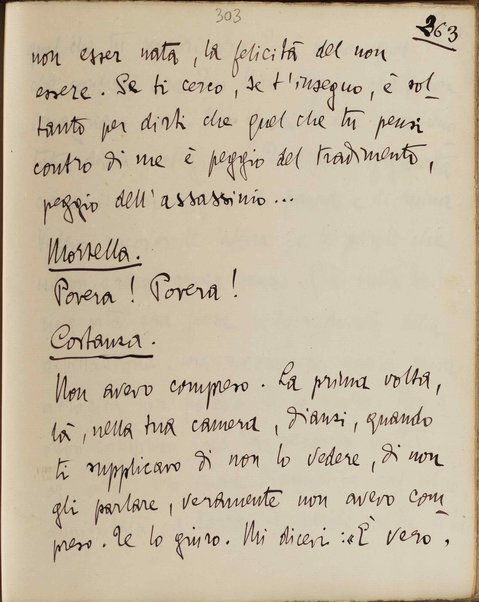 303
263
non esser nata, la felicità del non
essere. Se ti cerco, se t'inseguo, è sol-
tanto per dirti che quel che tu pensi
contro di me è peggio del tradimento,
peggio dell'assassinio...
Mortella.
Povera! Povera!
Costanza.
Non avevo compreso. La prima volta,
là, nella tua camera, dianzi, quando
ti supplicavo di non lo vedere, di non
gli parlare, veramente non avevo com-
preso. Te lo giuro. Mi dicevi: «È vero,